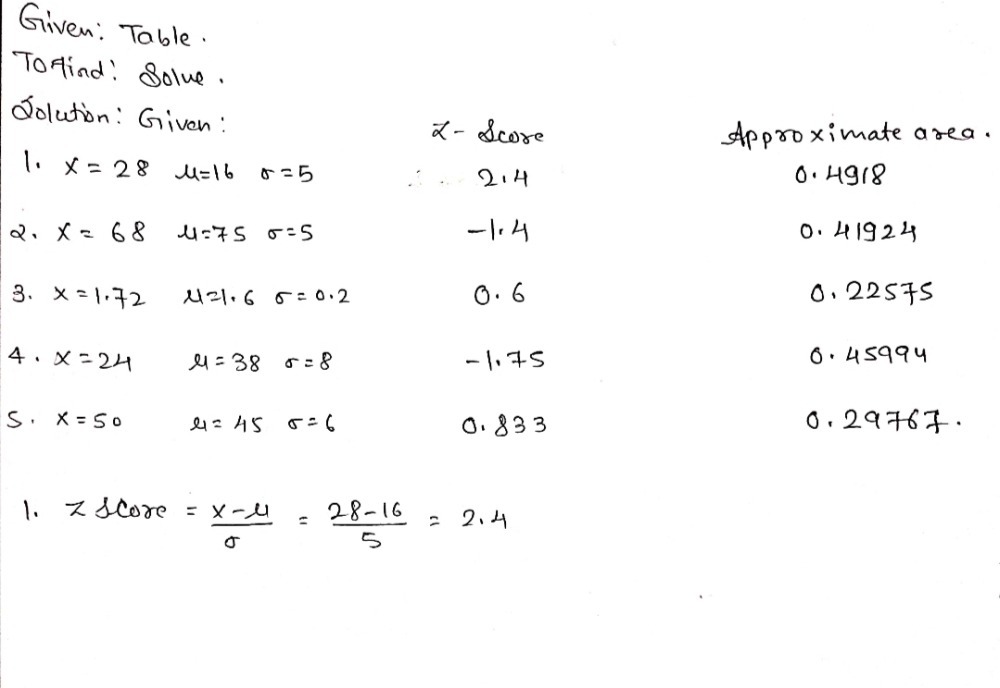 Given: Table.
To find: Solve.
Solution: Given:
Z- Score Approximate area.
1. x = 28 μ=16 σ=5 2.4 0.4918
2. x = 68 μ=75 σ=5 -1.4 0.41924
3. x = 1.72 μ=1.6 σ=0.2 0.6 0.22575
4. x = 24 μ=38 σ=8 -1.75 0.45994
5. x = 50 μ=45 σ=6 0.833 0.29767.
1. z score = x-μ/σ = 28-16/5 = 2.4